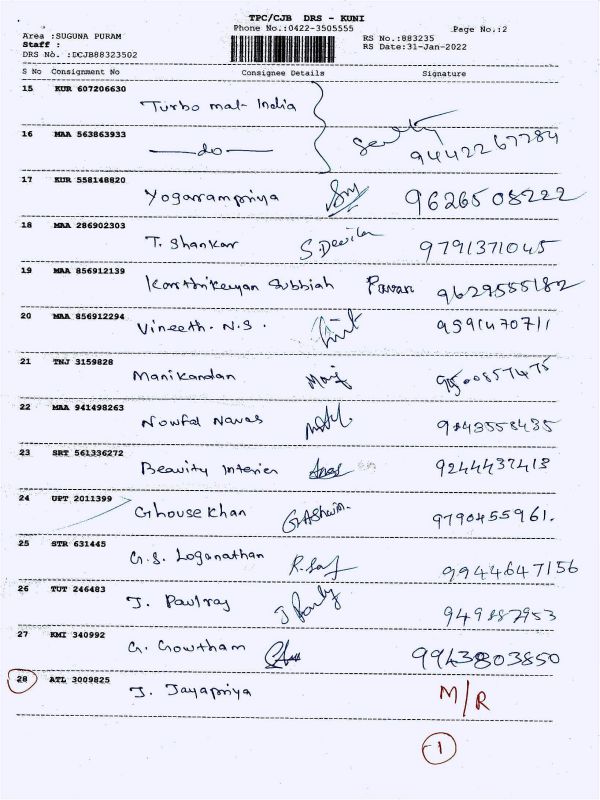 TPC/CJB DRS - KUNI
Phone No.:0422-3505555 Page No.:2
Area :SUGUNA PURAM RS No.:883235
Staff : RS Date:31-Jan-2022
DRS No. :DCJB88323502
S No Consignment No Consignee Details Signature
15 KUR 607206630
Turbo mat- India
16 MAA 563863933
—do— 9442267784
17 KUR 558148820
Yogarampriya 9626508222
18 MAA 286902303
T. Shankar S. Devika 9791371045
19 MAA 856912139
Karthikeyan Subbiah Pavan 9629555182
20 MAA 856912294
Vineeth. N.S. 9591470711
21 TNJ 3159828
Manikandan Manij
22 MAA 941498263
Nowfal Navas 9843558435
23 SRT 561336272
Beavity Interier 9244437413
24 UPT 2011399
Ghouse Khan G.Ashwin. 9790455961.
25 STR 631445
G.S. Loganathan 9944647156
26 TUT 246483
J. Paulraj J Pauly 949887953
27 KMI 340992
G. Gowtham 9943803850
28 ATL 3009825
J. Jayapriya M/R
1